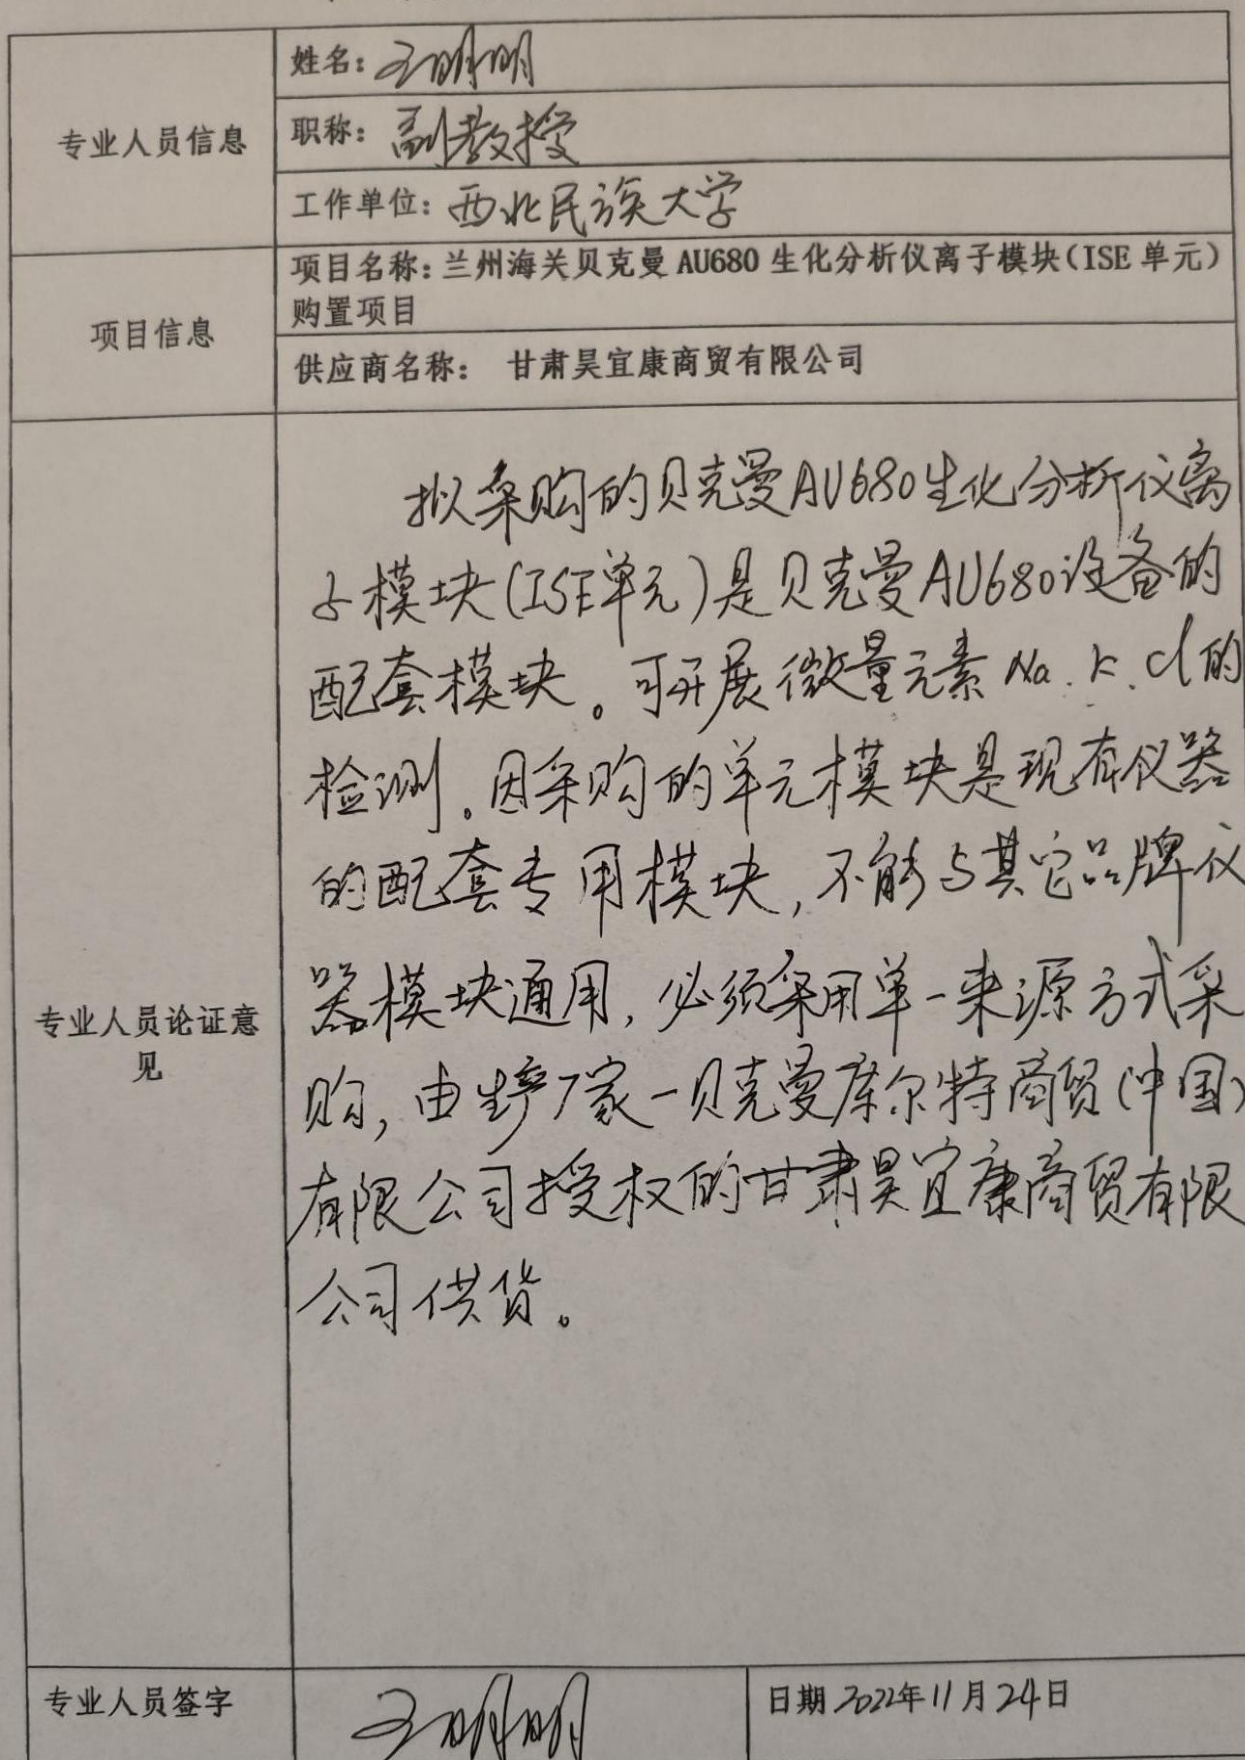 专业人员信息
姓名：王明明
职称：副教授
工作单位：西北民族大学
项目信息
项目名称：兰州海关贝克曼 AU680 生化分析仪离子模块（ISE 单元）
购置项目
供应商名称： 甘肃昊宜康商贸有限公司
专业人员论证意
见
拟采购的贝克曼AU680生化分析仪离
子模块(ISE单元)是贝克曼AU680设备的
配套模块。可开展微量元素Na.K.Cl的
检测。因采购的单元模块是现有仪器
的配套专用模块,不能与其它品牌仪
器模块通用,必须采用单一来源方式采
购,由生产厂家-贝克曼库尔特商贸(中国)
有限公司授权的甘肃昊宜康商贸有限
公司供货。
专业人员签字
王明明
日期 2022年11月24日